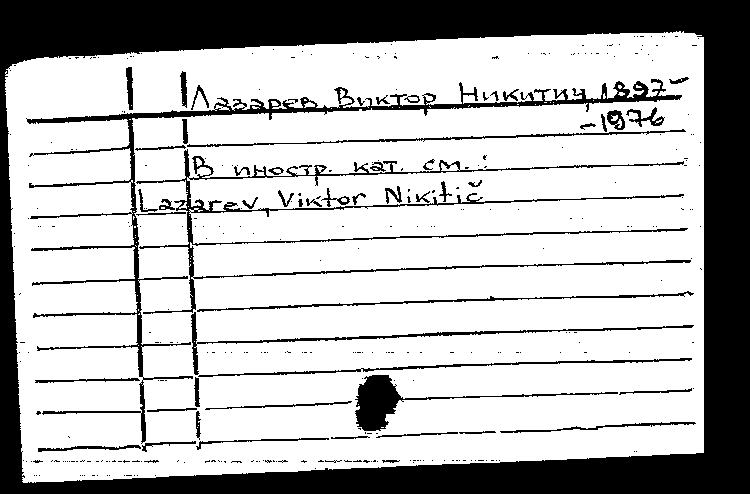 Лазарев, Виктор Никитич, 1897-
-1976
В иностр. кат. см.:
Lazarev, Viktor Nikitič